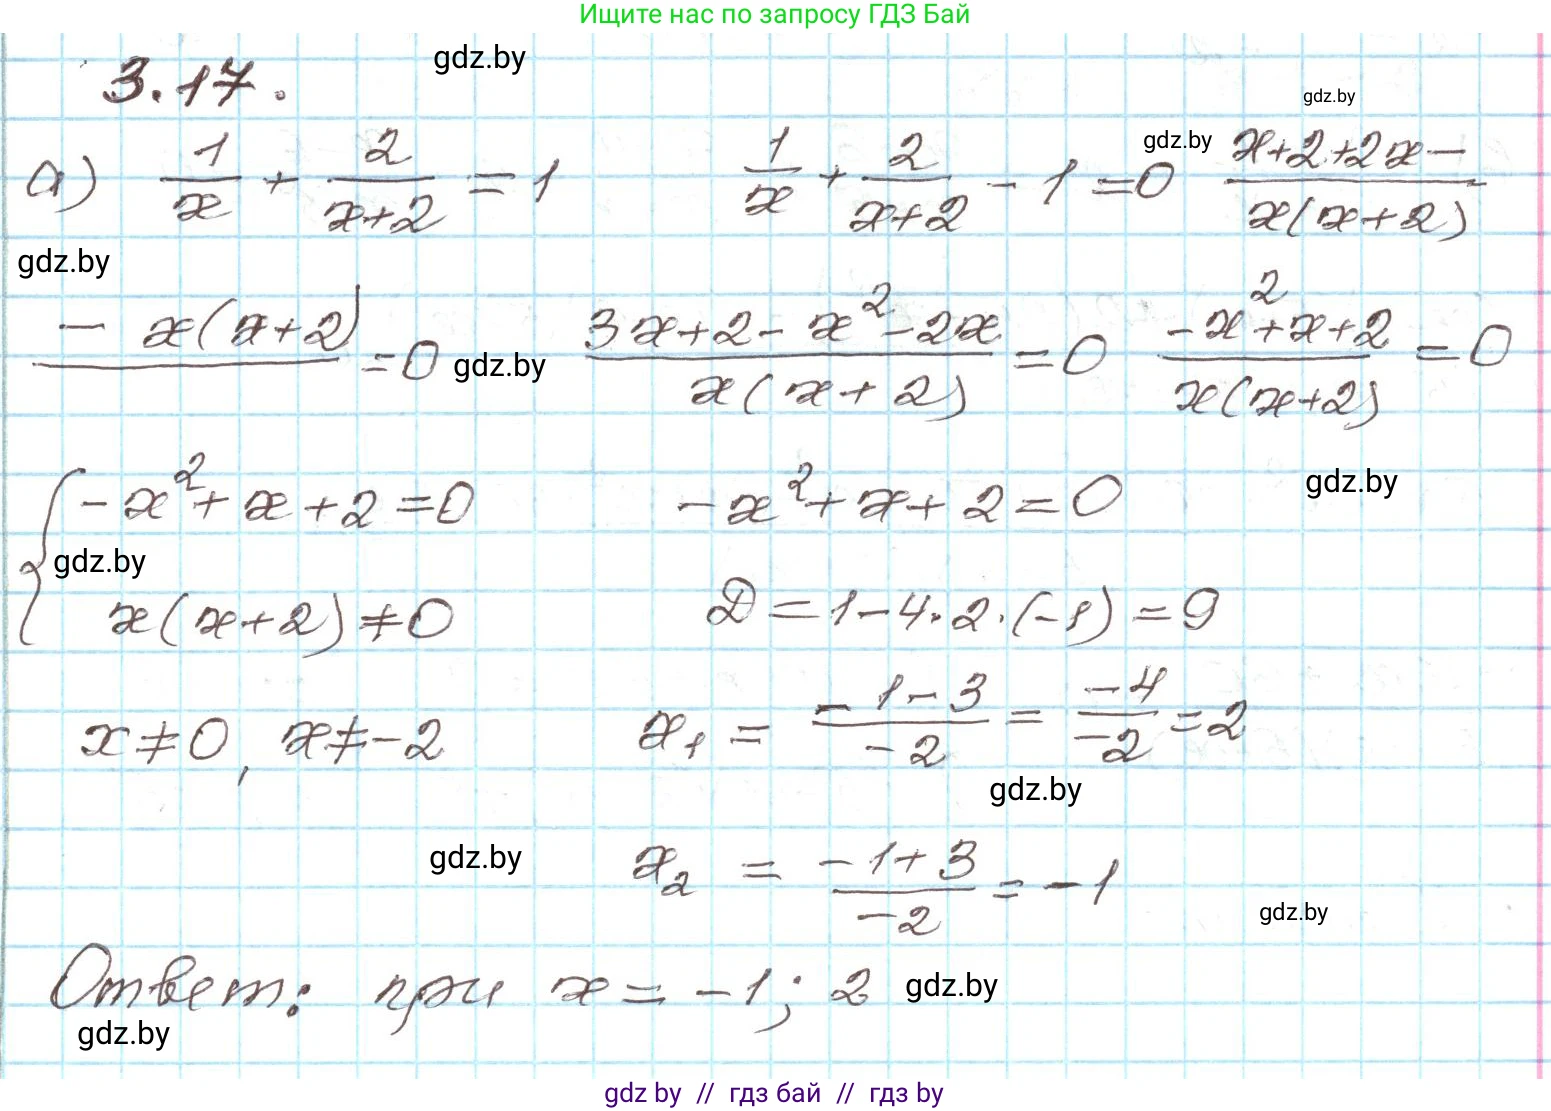 Ищите нас по запросу ГДЗ Бай
3.17.
gdz.by
gdz.by
а) 1/x + 2/(x+2) = 1    1/x + 2/(x+2) - 1 = 0    gdz.by    (x+2+2x-)/(x(x+2))
gdz.by
(- x(x+2))/ = 0    gdz.by    (3x+2-x²-2x)/(x(x+2)) = 0    (-x²+x+2)/(x(x+2)) = 0
{ -x²+x+2=0    -x²+x+2=0    gdz.by
gdz.by
x(x+2)≠0    D=1-4·2·(-1)=9
x≠0, x≠-2    x₁ = (-1-3)/(-2) = (-4)/(-2) = 2
gdz.by
gdz.by    x₂ = (-1+3)/(-2) = -1
gdz.by
Ответ: при x = -1; 2    gdz.by
gdz.by
gdz by // гдз бай // гдз by